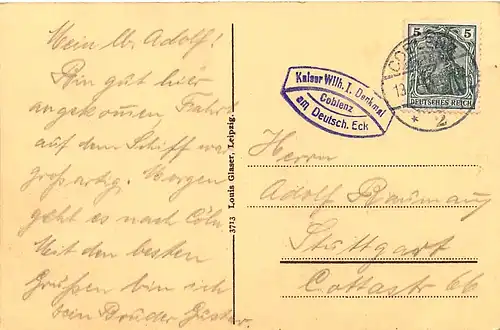 Mein lb. Adolf!
Bin gut hier
angekommen, Fahrt
auf dem Schiff war
großartig. Morgen
geht es nach Cöln.
Mit den besten
Grüßen bin ich
Dein Bruder Gustav.
3713 Louis Glaser, Leipzig.
Kaiser Wilh. I. Denkmal
Coblenz
am Deutsch. Eck
5 5
DEUTSCHES REICH
COBLENZ
13
* 2
Herrn
Adolf
Stuttgart
Cottastr 66